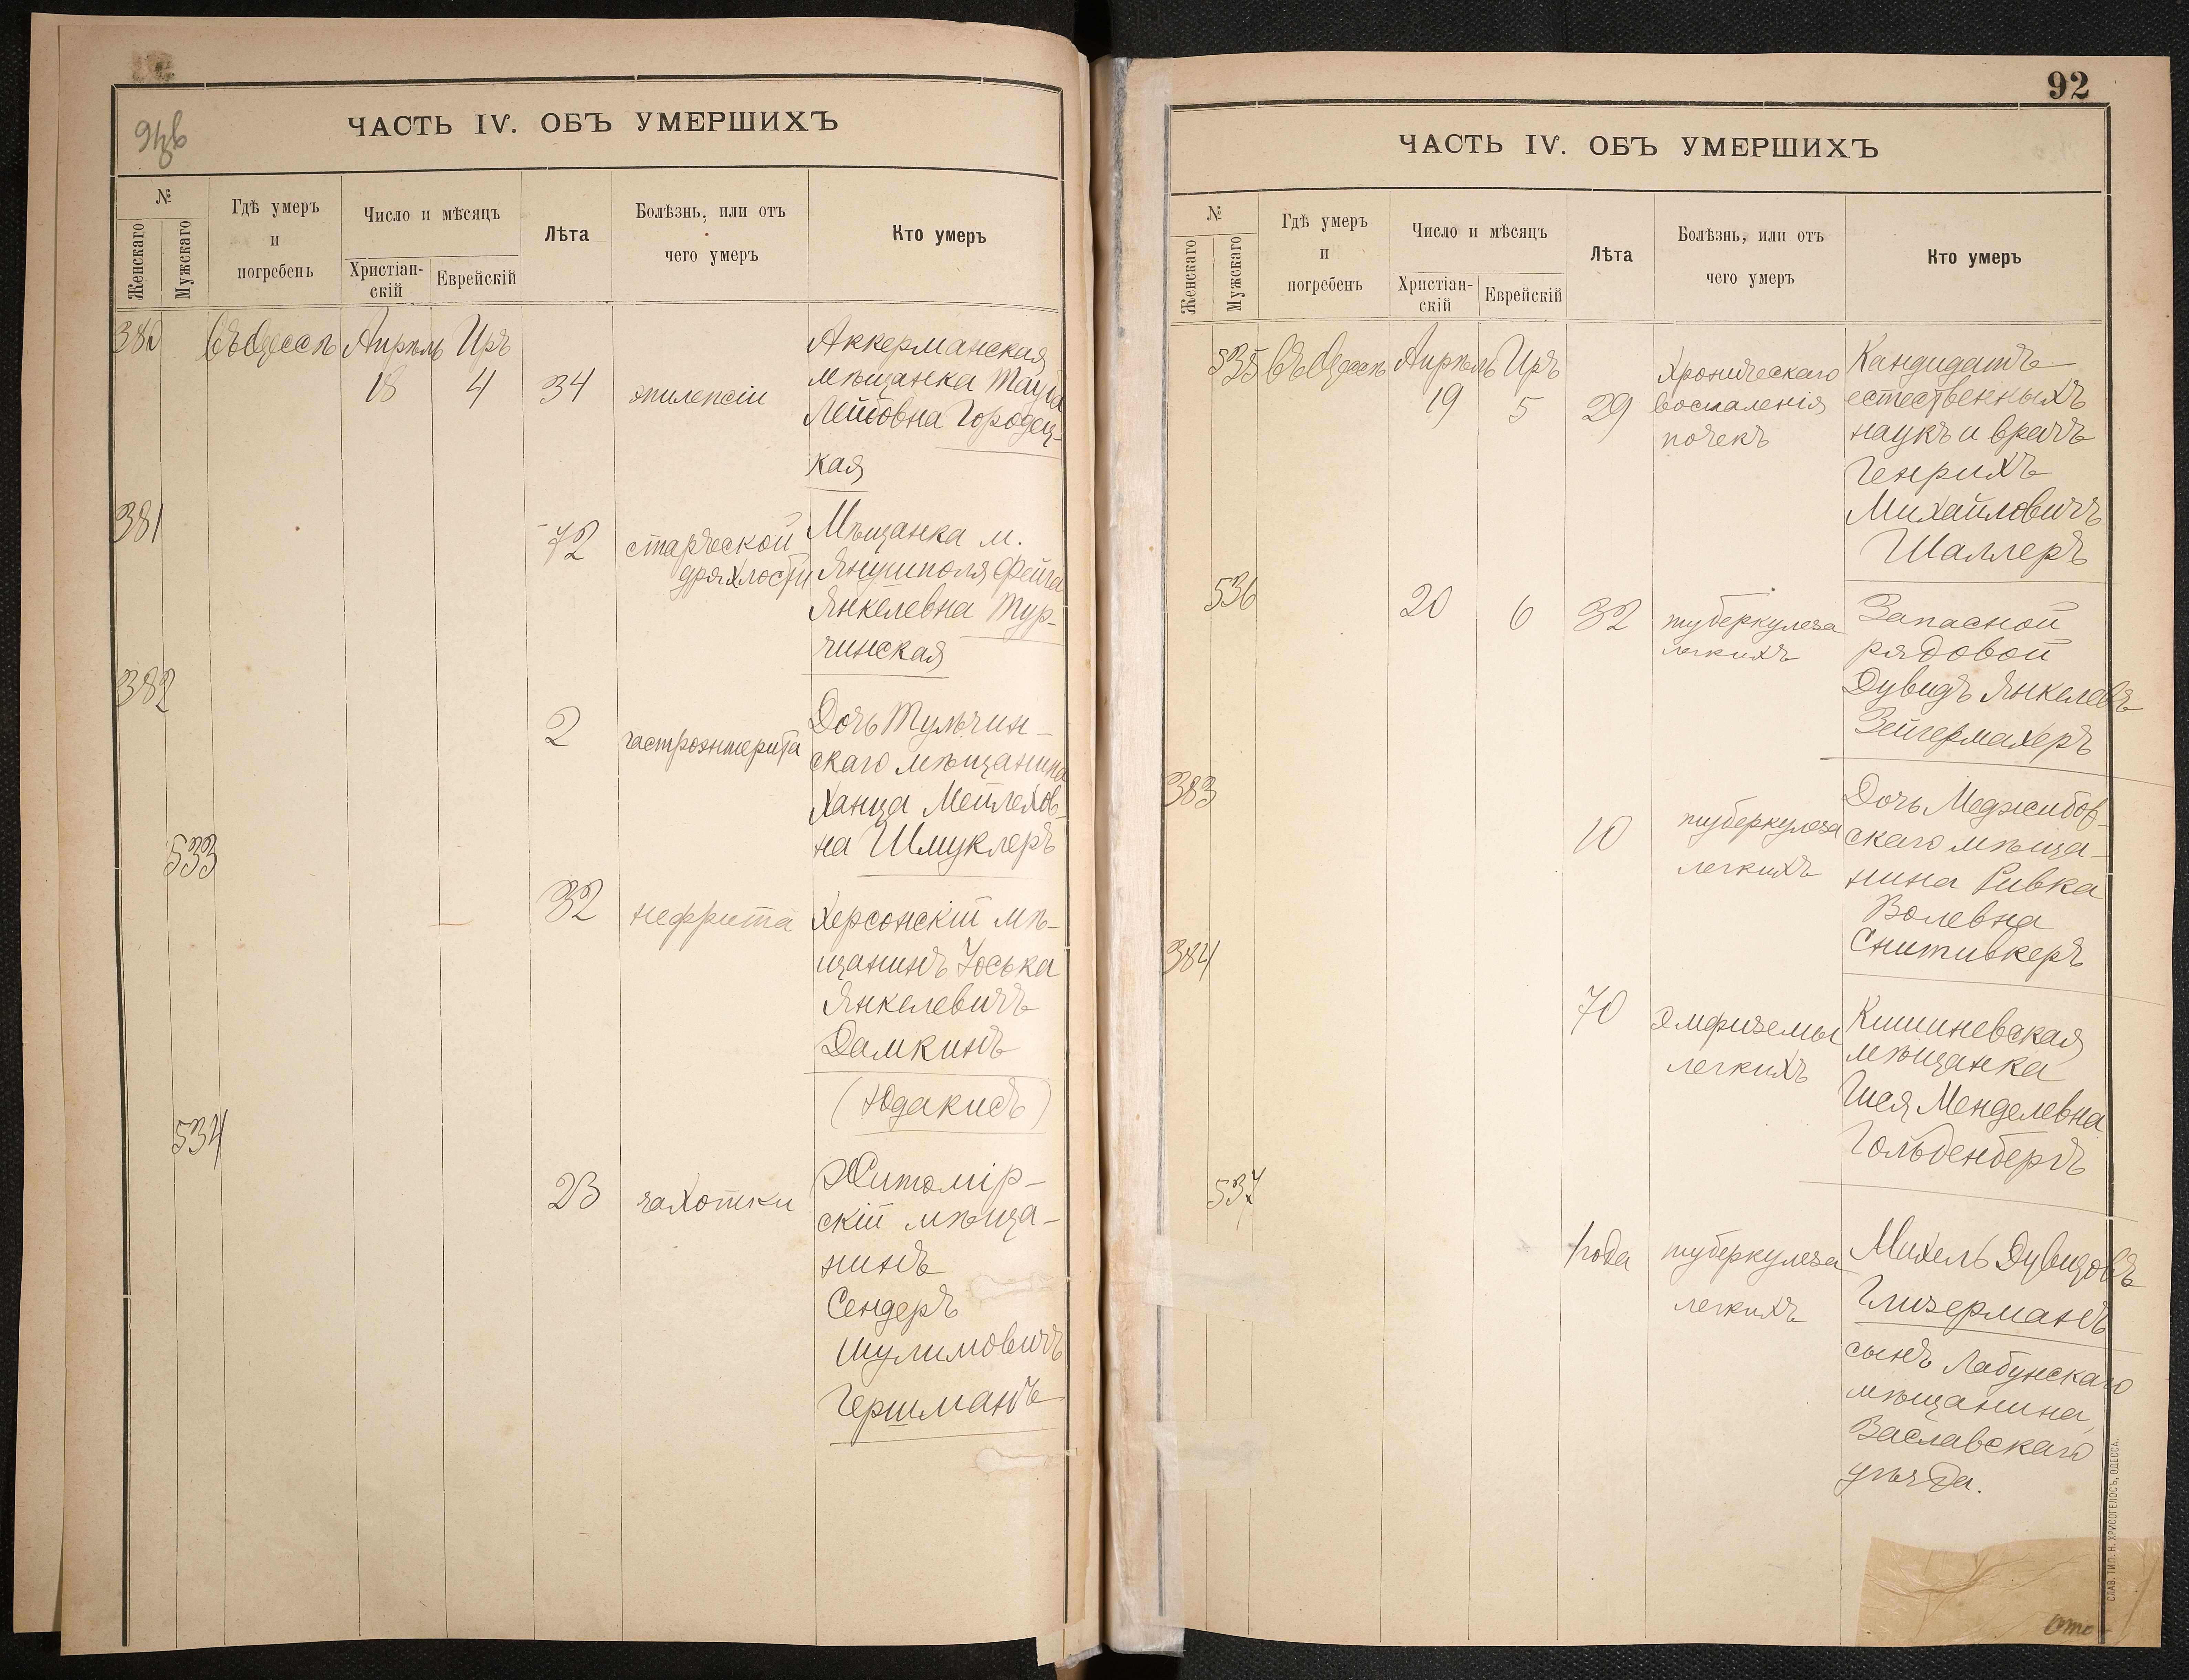 ЧАСТЬ IV. ОБЪ УМЕРШИХЪ
№
Женскаго
Мужскаго
Гдѣ умеръ
и
погребенъ
Число и мѣсяцъ
Христіан-
скій
Еврейскій
Лѣта
Болѣзнь, или отъ
чего умеръ
Кто умеръ
380 въ Одессѣ Апрѣль Иръ
18 4 34 эпилепсіи
Аккерманская
мѣщанка Тауба
Лейбовна Городец-
кая
381
72 старческой
дряхлости
Мѣщанка м.
Янушполя Фейга
Янкелевна Тур-
чинская
382
2 гастроэнтерита
Дочь Тульчин-
скаго мѣщанина
Ханца Мейлехов-
на Шмуклеръ
533
32 нефрита
Херсонскій мѣ-
щанинъ Іоська
Янкелевичъ
Дамкинъ
(Юдакисъ)
534
23 чахотки
Житомір-
скій мѣща-
нинъ
Сендеръ
Шулимовичъ
Гершманъ
92
ЧАСТЬ IV. ОБЪ УМЕРШИХЪ
№
Женскаго
Мужскаго
Гдѣ умеръ
и
погребенъ
Число и мѣсяцъ
Христіан-
скій
Еврейскій
Лѣта
Болѣзнь, или отъ
чего умеръ
Кто умеръ
535 въ Одессѣ Апрѣль Иръ
19 5 29
хроническаго
воспаленія
почекъ
Кандидатъ
естественныхъ
наукъ и врачъ
Генрихъ
Михайловичъ
Шаллеръ
536
20 6 32 туберкулеза
легкихъ
Запасной
рядовой
Дувидъ Янкелевъ
Зейгермахеръ
383
10 туберкулеза
легкихъ
Дочь Меджибов-
скаго мѣща-
нина Ривка
Волевна
Снитивкеръ
384
70 эмфиземы
легкихъ
Кишиневская
мѣщанка
Менделевна
Гольденбергъ
537
1 года туберкулеза
легкихъ
Михель Дувидовъ
Глизерманъ
сынъ Лабунскаго
мѣщанина
Заславскаго
уѣзда.
СЛАВ. ТИП. Н. ХРИСОГЕЛОСЪ, ОДЕССА.